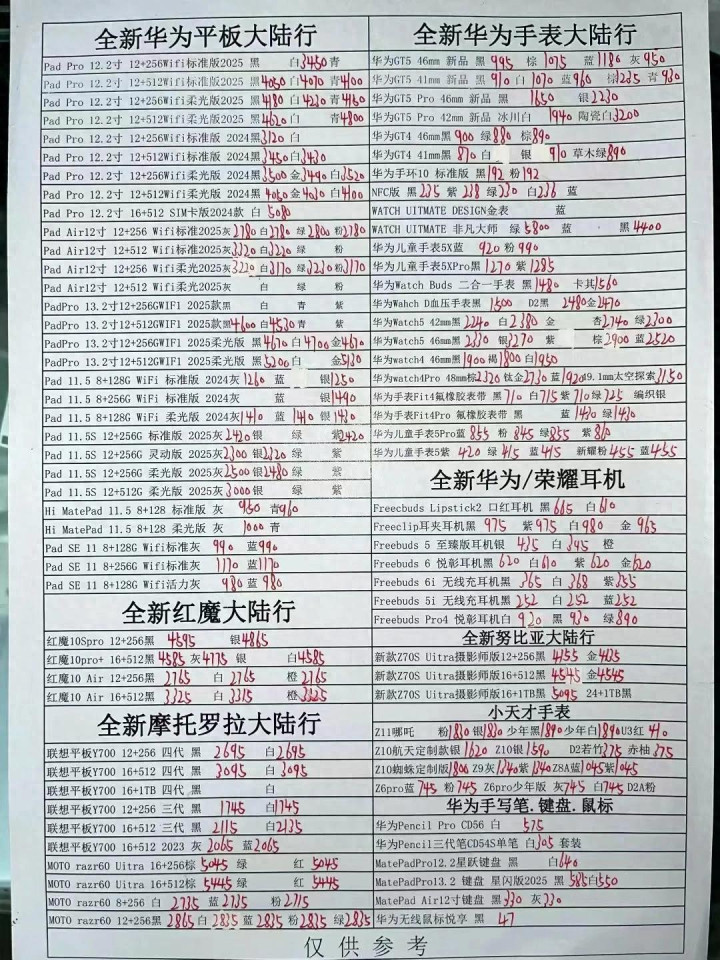 全新华为平板大陆行
Pad Pro 12.2寸 12+256Wifi标准版2025 黑 白3450青
Pad Pro 12.2寸 12+512Wifi标准版2025黑4050白4070青4100
Pad Pro 12.2寸 12+256Wifi柔光版2025黑4180 白4230青4160
Pad Pro 12.2寸 12+512Wifi柔光版2025黑4620白 青4800
Pad Pro 12.2寸 12+256Wifi标准版 2024黑3120白
Pad Pro 12.2寸 12+512Wifi标准版 2024黑3450白3430
Pad Pro 12.2寸 12+256Wifi柔光版 2024黑3500金3490白3520
Pad Pro 12.2寸 12+512Wifi柔光版 2024黑4050金4030白4100
Pad Pro 12.2寸 16+512 SIM卡版2024款 白 5080
Pad Air12寸 12+256 Wifi标准2025灰2780白2780 绿2800粉2780
Pad Air12寸 12+512 Wifi标准2025灰3320白3220 绿 粉
Pad Air12寸 12+256 Wifi柔光2025灰3220白3170 绿3230粉3170
Pad Air12寸 12+512 Wifi柔光2025灰 白 绿 粉
PadPro 13.2寸12+256GWIF1 2025款黑 白 青 紫
PadPro 13.2寸12+512GWIF1 2025款黑4600白4530青 紫
PadPro 13.2寸12+256GWIF1 2025柔光黑4670白4700金4670
PadPro 13.2寸12+512GWIF1 2025柔光版 黑5200白 金5130
Pad 11.5 8+128G WiFi 标准版 2024灰1260 蓝 银1250
Pad 11.5 8+256G WiFi 标准版 2024灰 蓝 银1490
Pad 11.5 8+128G WiFi 柔光版 2024灰1410 蓝1410银1430
Pad 11.5S 12+256G 标准版 2025灰2420银 绿 紫2420
Pad 11.5S 12+256G 灵动版 2025灰2300银2320 绿 紫
Pad 11.5S 12+256G 柔光版 2025灰2500银2480 绿 紫
Pad 11.5S 12+512G 柔光版 2025灰3000银 绿 紫
Hi MatePad 11.5 8+128 标准版 灰 950 青960
Hi MatePad 11.5 8+128 柔光版 灰 1000青
Pad SE 11 8+128G Wifi标准灰 990 蓝990
Pad SE 11 8+256G Wifi标准灰 1170蓝1170
Pad SE 11 8+128G Wifi活力灰 980蓝980
全新红魔大陆行
红魔10Spro 12+256黑 4595 银4865
红魔10pro+ 16+512黑4585灰4775 银 白4585
红魔10 Air 12+256黑 2765 白 2765 橙2765
红魔10 Air 16+512黑 3325 白 3315 橙3325
全新摩托罗拉大陆行
联想平板Y700 12+256 四代 黑 2695 白2695
联想平板Y700 16+512 四代 黑 3095 白3095
联想平板Y700 16+1TB 四代 黑 白
联想平板Y700 12+256 三代 黑 1745 白1745
联想平板Y700 16+512 三代 黑 2115 白2135
联想平板Y700 16+512 2023 灰 2065 蓝2065
MOTO razr60 Uitra 16+256棕 5045 绿 红 5045
MOTO razr60 Uitra 16+512棕 5445 绿 红 5445
MOTO razr60 8+256 白 2735 蓝2735 粉2715
MOTO razr60 12+256黑 2865白2835蓝2835粉2835绿2835
全新华为手表大陆行
华为GT5 46mm 新品 黑 995 棕1075 蓝1180灰950
华为GT5 41mm 新品 黑910白1070蓝960 棕1235青930
华为GT5 Pro 46mm 新品 黑 1650 银2230
华为GT5 Pro 42mm 新品 冰川白 1940陶瓷白3200
华为GT4 46mm黑900绿880 棕890
华为GT4 41mm黑870白 银 910草木绿890
华为手环10 标准版 黑192粉192
NFC版 黑235紫238绿230白236 蓝
WATCH UITMATE DESIGN金表 蓝
WATCH UITMATE 非凡大师 绿5800 蓝 黑4400
华为儿童手表5X蓝 920粉990
华为儿童手表5XPro黑1270紫1285
华为Watch Buds 二合一手表 黑1480 卡其1560
华为Wahch D血压手表黑 1500 D2黑 2480金2470
华为Watch5 42mm黑2240白2380 金 杏2740绿2300
华为Watch5 46mm黑2330银3270 紫 棕2900蓝2520
华为watch4 46mm黑1900褐1800白1950
华为watch4Pro 48mm棕2320钛金2730蓝192049.1mm太空探索3150
华为手表Fit4氟橡胶表带 黑710白715紫710绿725 编织银
华为手表Fit4Pro 氟橡胶表带 黑 蓝1430绿1430
华为儿童手表5Pro蓝855 粉845绿855 紫810
华为儿童手表5紫 420绿415蓝415 新耀粉455蓝455
全新华为/荣耀耳机
Freecbuds Lipstick2 口红耳机 黑665 白610
Freeclip耳夹耳机黑975紫975 白980 金965
Freebuds 5 至臻版耳机银 435 白345 橙
Freebuds 6 悦彰耳机黑620白610 紫620金620
Freebuds 6i 无线充耳机黑 365 白368 紫355
Freebuds 5i 无线充耳机黑252 白252 蓝252
Freebuds Pro4 悦彰耳机白920 黑930绿890
全新努比亚大陆行
新款Z70S Uitra摄影师版12+256黑 4155 金4135
新款Z70S Uitra摄影师版16+512黑 4545金4545
新款Z70S Uitra摄影师版16+1TB黑 5095 24+1TB黑
小天才手表
Z11哪吒 粉1830银1830少年黑1890少年白1890U3红 410
Z10航天定制款银1620 Z10银1590 D2若竹375赤柚375
Z10蜘蛛定制版1800 Z9灰1340紫1340Z8A蓝1045紫1045
Z6pro蓝745粉745 Z6pro少年版 灰745白745D2A粉
华为手写笔.键盘.鼠标
华为Pencil Pro CD56 白 575
华为Pencil三代笔CD54S单笔 白305套装
MatePadPro12.2星跃键盘 黑 白640
MatePadPro13.2 键盘 星闪版2025 黑585白550
MatePad Air12寸键盘 黑330灰330
华为无线鼠标悦享 黑 47
仅供参考